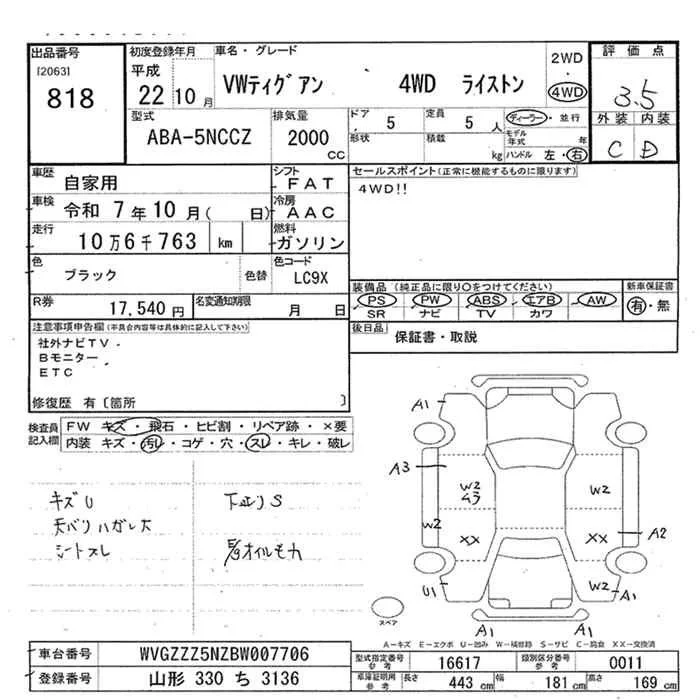 出品番号
[2063]
818
初度登録年月
平成
22 10 月
車名・グレード
VWティグアン 4WD ライストン
2WD
・
4WD
評価点
3.5
外装 内装
C D
型式
ABA-5NCCZ
排気量
2000
CC
ドア
5
定員
5 人
形状
積載
kg
ディーラー・並行
モデル年式 年
ハンドル 左・右
車歴
自家用
シフト
FAT
車検
令和 7年10月( 日)
冷房
AAC
走行
10万6千763 km
燃料
ガソリン
色
ブラック
色替
色コード
LC9X
R券
17,540 円
名変通知期限
月 日
セールスポイント(正常に機能するものに限ります)
4WD!!
装備品 (純正品に限り○をつけてください)
新車保証書
PS PW ABS エアB AW
有・無
SR ナビ TV カワ
後日品
保証書・取説
注意事項申告欄(不具合内容等は具体的に記入して下さい)
社外ナビTV
Bモニター
ETC
修復歴 有〔箇所 〕
検査員記入欄
FW キズ・飛石・ヒビ割・リペア跡・×要
内装 キズ・汚レ・コゲ・穴・スレ・キレ・破レ
キズU
天バリハガレ大
シートスレ
下廻りS
オイルモレ
A1
A3
W2
ムラ
W2
W2
XX
XX
A2
U1
W2
A1
A1
A1
スペア
A-キズ E-エクボ U-凹み W-補修跡 S-サビ C-腐食 XX-交換済
車台番号
WVGZZZ5NZBW007706
登録番号
山形 330 ち 3136
型式指定番号
参考
16617
類別区分番号
参考
0011
車庫証明用
参考
長さ
443 cm
幅
181 cm
高さ
169 cm